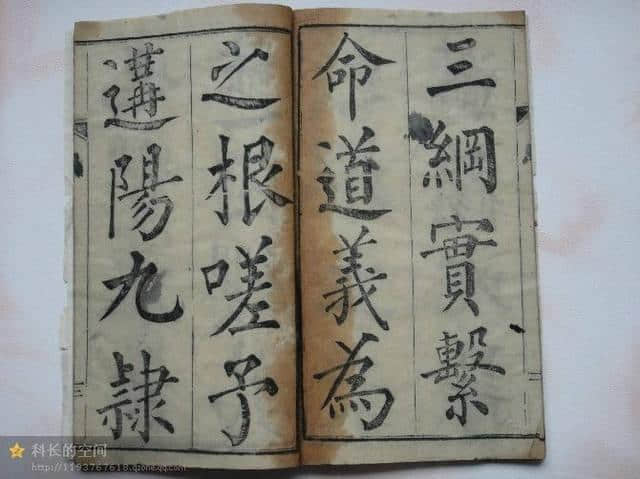 三綱實繫
命道義為
之根嗟予
遘陽九隷
科长的空间
http://1193767618.qzone.qq.com